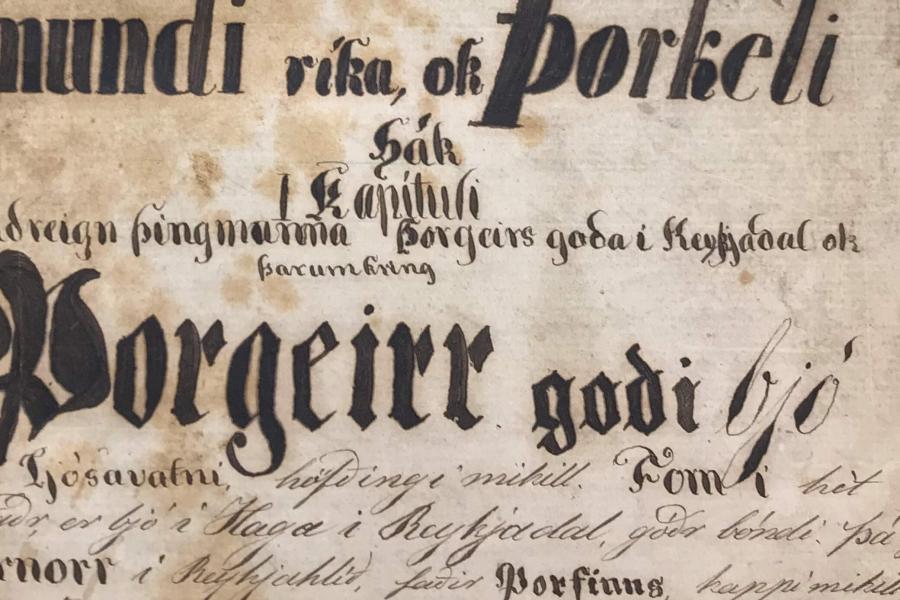 mundi ríka, ok Þorkeli
Hák
1 Kapituli
dreign þingmanna Þorgeirs goða i Reykjadal ok
þarumkring
Þorgeirr goði bjó
Ljósavatni, höfðingi mikill. Forni hét
aðr, er bjó i Haga i Reykjadal, góðr bóndi. þá
rnorr i Reykjahlíð, faðir Þorfinns, kappi mikill